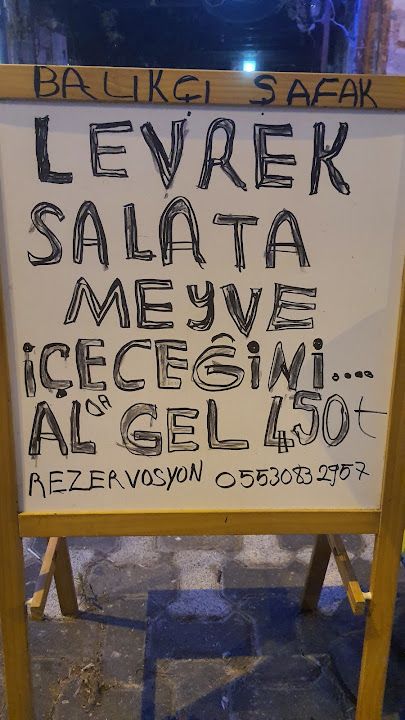 BALIKÇI ŞAFAK
LEVREK
SALATA
MEYVE
İÇECEĞİNİ....
AL DA GEL 450t
REZERVOSYON 05530832957